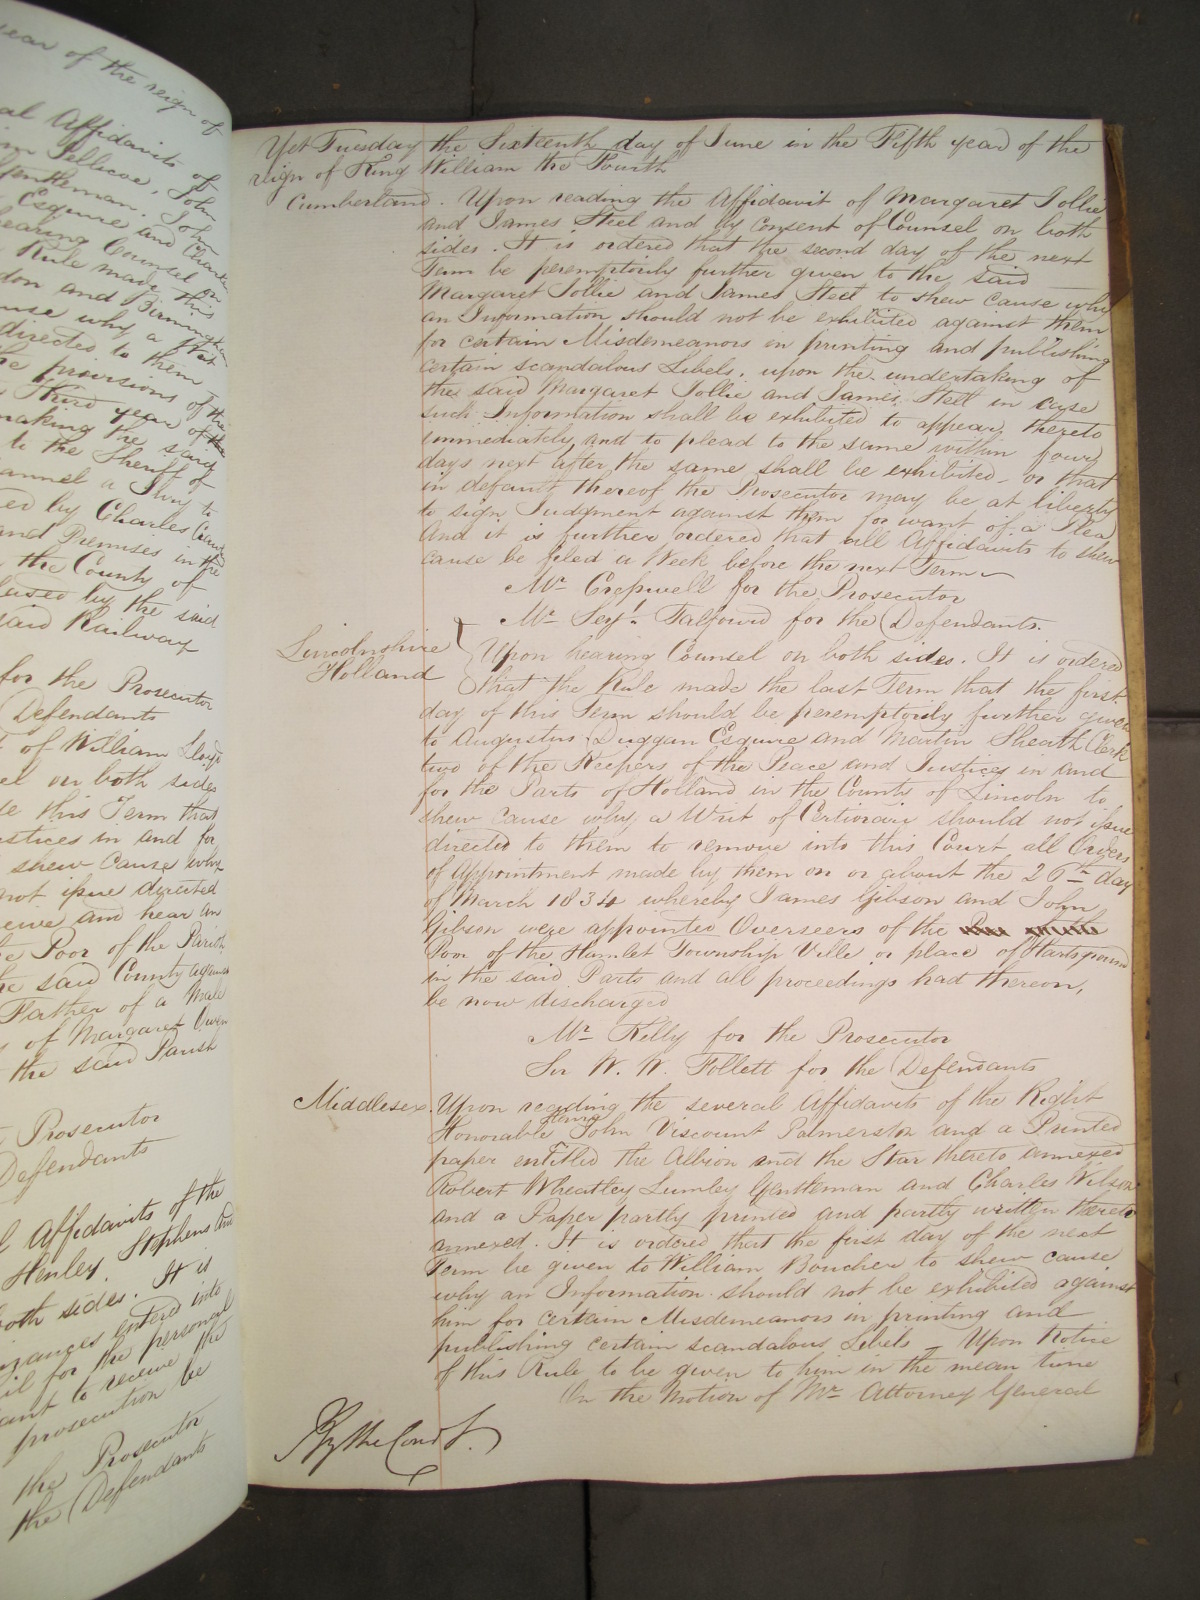 year of the reign of
al Affidavits of
Pellicoe, John
Gentleman. John
Esquire and Charles
hearing Counsel on
Rule made this
don and Birmingham
use why a Writ
directed to them
he provisions of the
Third year of the
making the said
to the Sheriff of
annel a Jury to
ed by Charles
and Premises in the
the County of
used by the said
said Railway
for the Prosecutor
Defendants
of William Lloyd
el on both sides
de this Term that
ustices in and for
shew cause why
not issue directed
ceive and hear an
he Poor of the Parish
he said County
Father of a Male
of Margaret Owen
the said Parish
Prosecutor
Defendants
l Affidavits of the
Henley Stephens and
both sides. It is
zances entered into
il for the personal
ant to receive the
prosecution be
the Prosecutor
the Defendants
Yet Tuesday the Sixteenth day of June in the Fifth year of the
reign of King William the Fourth
Cumberland. Upon reading the Affidavit of Margaret Jollie
and James Steel and by consent of Counsel on both
sides. It is ordered that the second day of the next
Term be peremptorily further given to the said
Margaret Jollie and James Steel to shew cause why
an Information should not be exhibited against them
for certain Misdemeanors in printing and publishing
certain scandalous Libels, upon the undertaking of
the said Margaret Jollie and James Steel in case
such Information shall be exhibited to appear thereto
immediately and to plead to the same within four
days next after the same shall be exhibited or that
in default thereof the Prosecutor may be at liberty
to sign Judgment against them for want of a Plea
And it is further ordered that all Affidavits to shew
cause be filed a Week before the next Term
Mr. Creswell for the Prosecutor
Mr. Serjt. Talfourd for the Defendants.
Lincolnshire
Holland
Upon hearing Counsel on both sides. It is ordered
that the Rule made the last Term that the first
day of this Term should be peremptorily further given
to Augustus Duggan Esquire and Martin Sheath Clerk
two of the Keepers of the Peace and Justices in and
for the Parts of Holland in the County of Lincoln to
shew cause why a Writ of Certiorari should not issue
directed to them to remove into this Court all Orders
of Appointment made by them on or about the 26th day
of March 1834 whereby James Gibson and John
Gibson were appointed Overseers of the
Poor of the Hamlet Township Ville or place of Hartsground
in the said Parts and all proceedings had thereon,
be now discharged
Mr. Kelly for the Prosecutor
Sir W. W. Follett for the Defendants
Middlesex. Upon reading the several Affidavits of the Right
Honorable Henry John Viscount Palmerston and a Printed
paper entitled the Albion and the Star thereto annexed
Robert Wheatley Lumley Gentleman and Charles Wilson
and a Paper partly printed and partly written thereto
annexed. It is ordered that the first day of the next
Term be given to William Boucher to shew cause
why an Information should not be exhibited against
him for certain Misdemeanors in printing and
publishing certain scandalous Libels _ Upon Notice
of this Rule to be given to him in the mean time
On the Motion of Mr. Attorney General
By the Court.